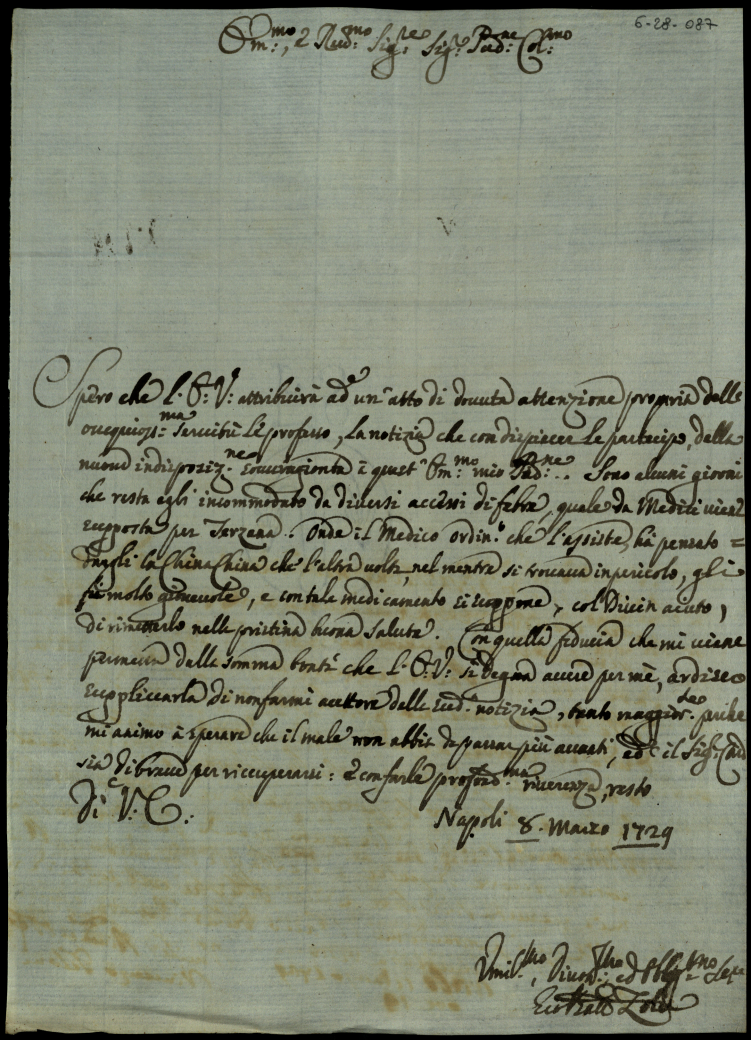 6-28-087
Em.mo, e Rev.mo Sig.re Sig.re Pad.ne Col.mo
Spero che l'E: V: attribuirà ad un'atto di dovuta attenzione propria della
ossequios.ma servitù le professo, la notizia che con dispiacer le partecipo, della
nuova indisposiz.ne sopraggionta à quest'Em.mo mio Pad.ne. Sono alcuni giorni
che resta egli incommodato da diversi accessi di febre, quale da Medici viene
supposta per Terzana. Onde il Medico ordin.o che l'assiste, hà pensato =
dargli la China China che l'altra volta, nel mentre si trovava in pericolo, gli
fù molto giovevole, e con tale medicamento si suppone, col Divin aiuto,
di rimetterlo nella pristina buona salute. Con quella fiducia che mi viene
permessa dalla somma bontà che l'E: V: si degna avere per mè, ardisco
supplicarla di non farmi autore della sud.a notizia, tanto maggior.te perche
mi animo à sperare che il male non abbia da passar più avanti, ed il Sig.r Card
sia di breve per ricuperarsi: e con farle profond.ma riverenza, resto
Di V: E:
Napoli 8. Marzo 1729
Umil.mo, Divot.mo ed Oblig.mo